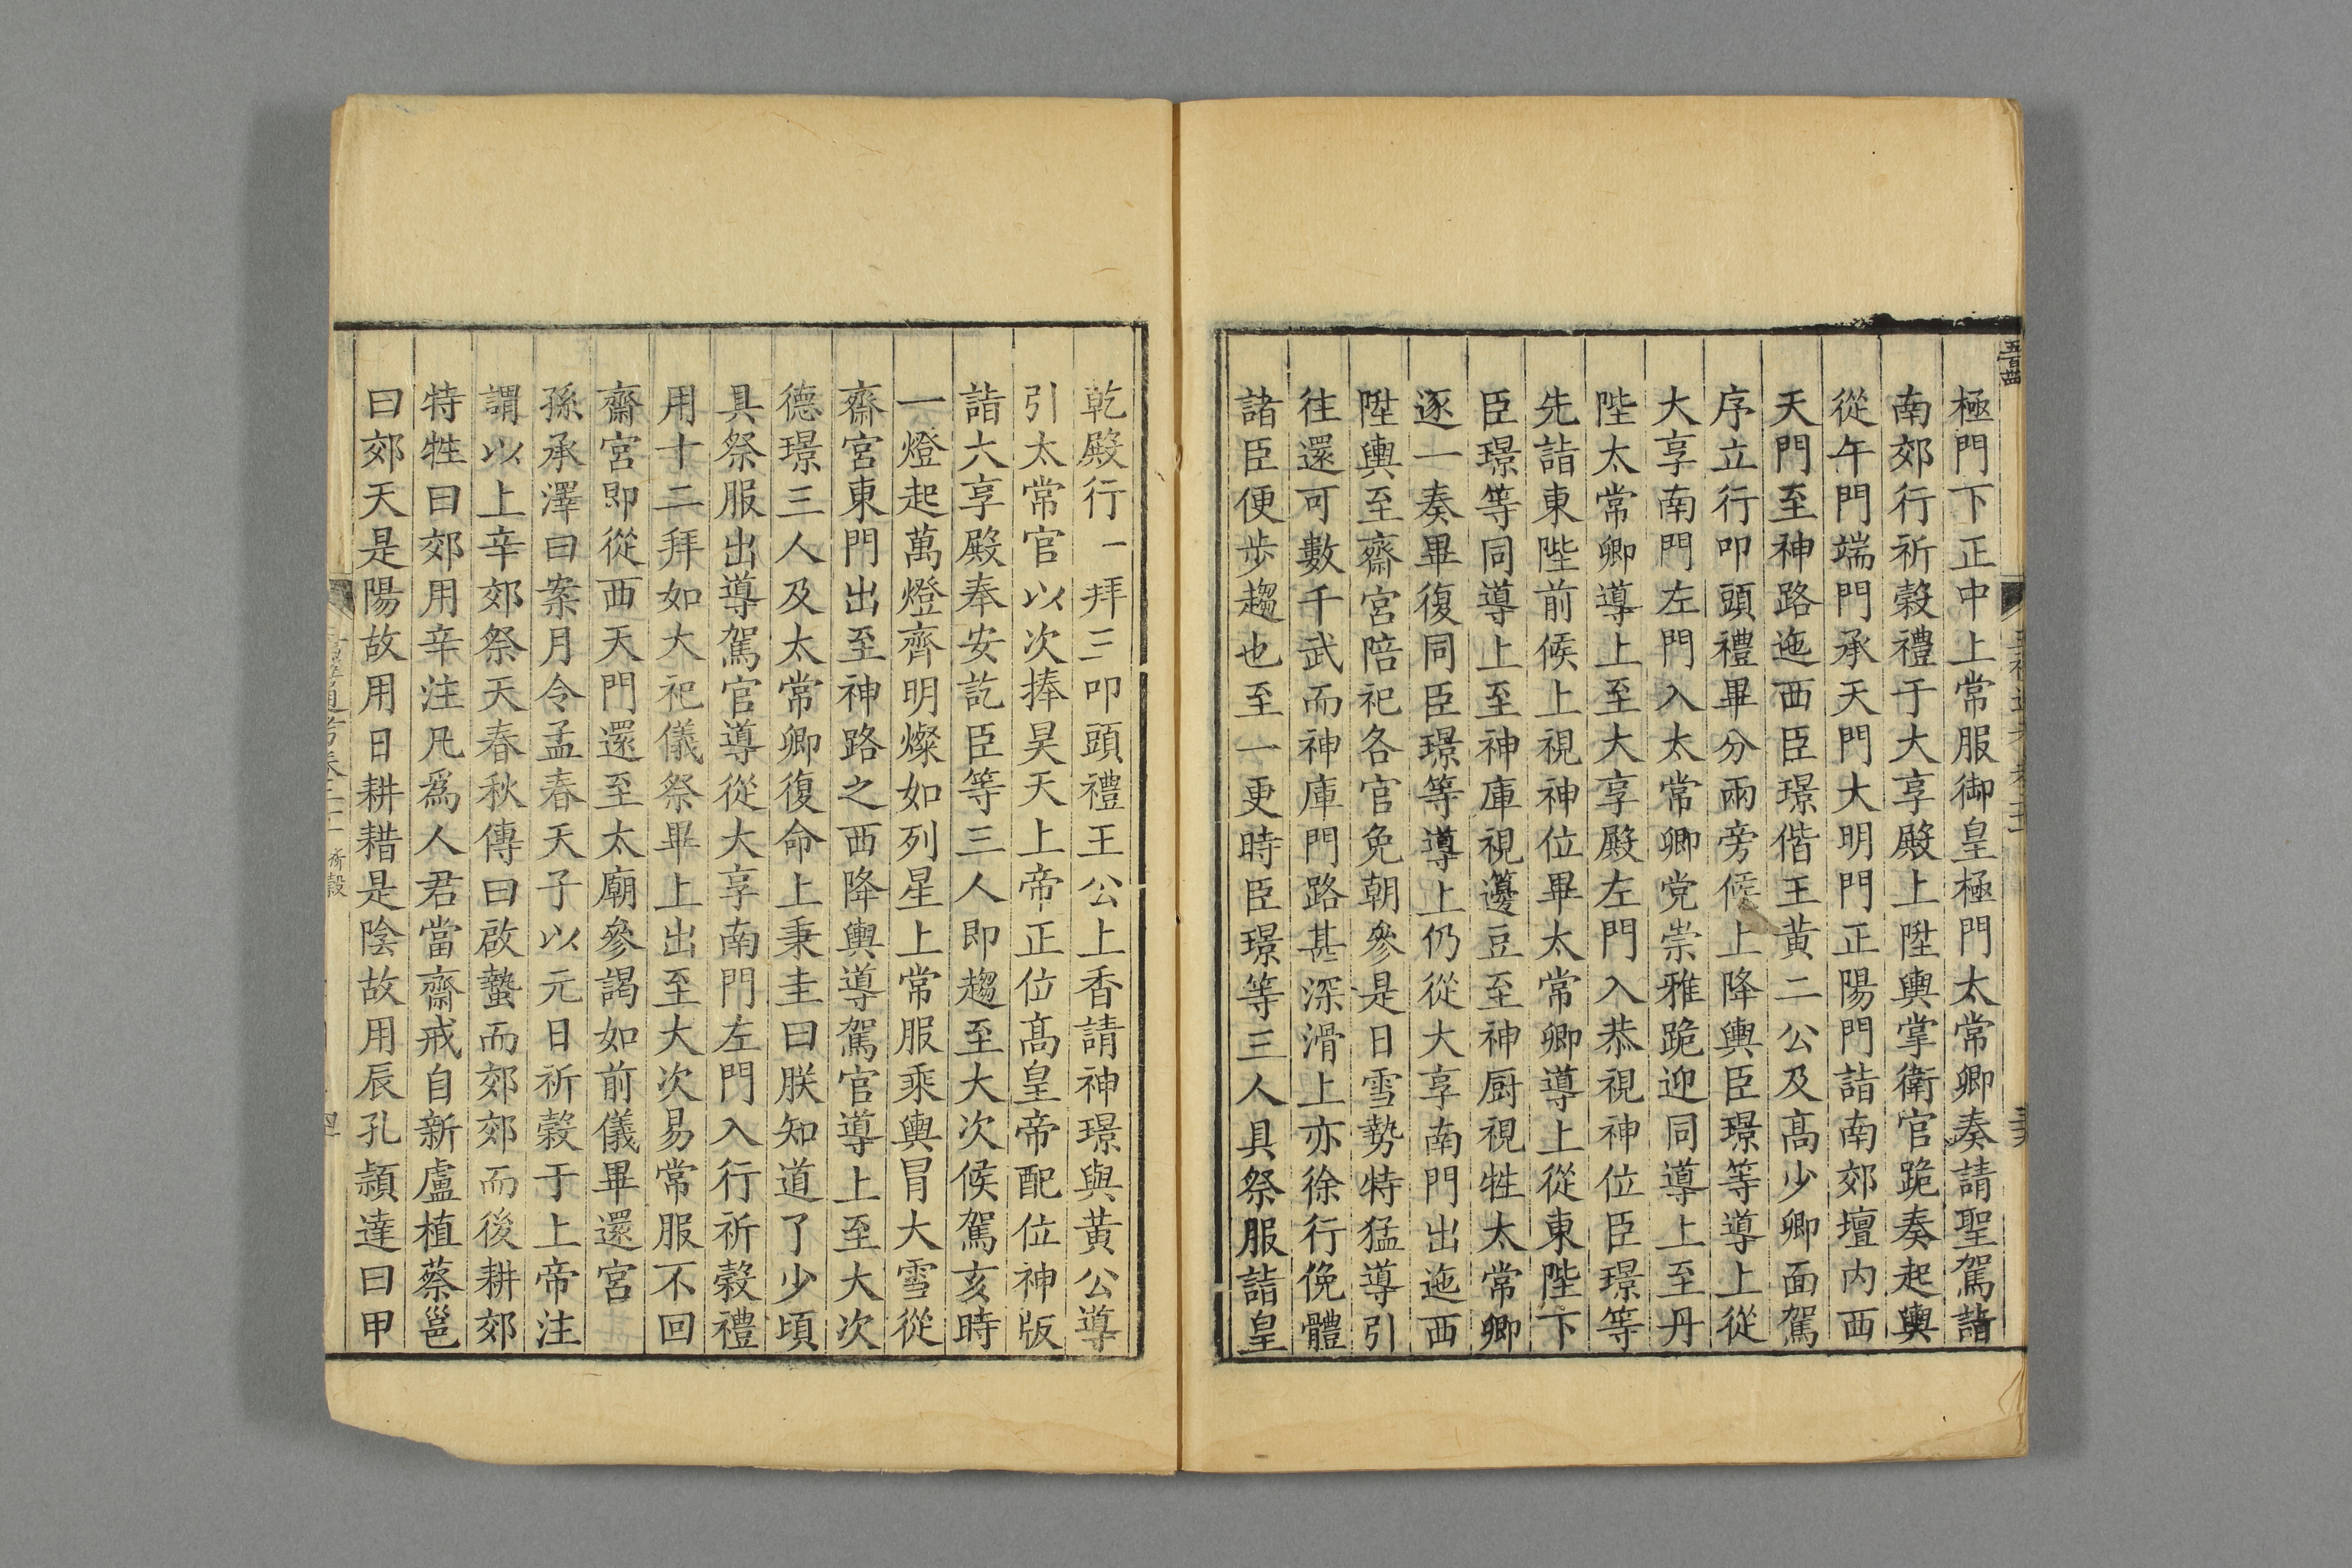 極門下正中上常服御皇極門太常卿奏請聖駕詣
南郊行祈穀禮于大享殿上陞輿掌衛官跪奏起輿
從午門端門承天門大明門正陽門詣南郊壇內西
天門至神路迤西臣璟偕王黃二公及髙少卿面駕
序立行叩頭禮畢分兩旁候上降輿臣璟等導上從
大享南門左門入太常卿党崇雅跪迎同導上至丹
陛太常卿導上至大享殿左門入恭視神位臣璟等
先詣東陛前候上視神位畢太常卿導上從東陛下
臣璟等同導上至神庫視籩豆至神厨視牲太常卿
逐一奏畢復同臣璟等導上仍從大享南門出迤西
陞輿至齋宮陪祀各官免朝參是日雪勢特猛導引
往還可數千武而神庫門路甚深滑上亦徐行俛體
諸臣便步趨也至一更時臣璟等三人具祭服詣皇
乾殿行一拜三叩頭禮王公上香請神璟與黃公導
引太常官以次捧昊天上帝正位髙皇帝配位神版
詣大享殿奉安訖臣等三人即趨至大次候駕亥時
一燈起萬燈齊明燦如列星上常服乘輿冒大雪從
齋宮東門出至神路之西降輿導駕官導上至大次
德璟三人及太常卿復命上秉圭曰朕知道了少頃
具祭服出導駕官導從大享南門左門入行祈穀禮
用十二拜如大祀儀祭畢上出至大次易常服不回
齋宮即從西天門還至太廟參謁如前儀畢還宮
孫承澤曰案月令孟春天子以元日祈穀于上帝注
謂以上辛郊祭天春秋傳曰啟蟄而郊郊而後耕郊
特牲曰郊用辛注凡爲人君當齋戒自新盧植蔡邕
曰郊天是陽故用日耕耤是陰故用辰孔頴達曰甲
祈穀